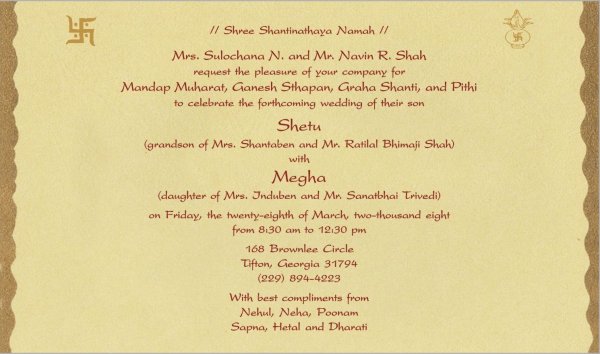 // Shree Shantinathaya Namah //
Mrs. Sulochana N. and Mr. Navin R. Shah
request the pleasure of your company for
Mandap Muharat, Ganesh Sthapan, Graha Shanti, and Pithi
to celebrate the forthcoming wedding of their son
Shetu
(grandson of Mrs. Shantaben and Mr. Ratilal Bhimaji Shah)
with
Megha
(daughter of Mrs. Induben and Mr. Sanatbhai Trivedi)
on Friday, the twenty-eighth of March, two-thousand eight
from 8:30 am to 12:30 pm
168 Brownlee Circle
Tifton, Georgia 31794
(229) 894-4223
With best compliments from
Nehul, Neha, Poonam
Sapna, Hetal and Dharati